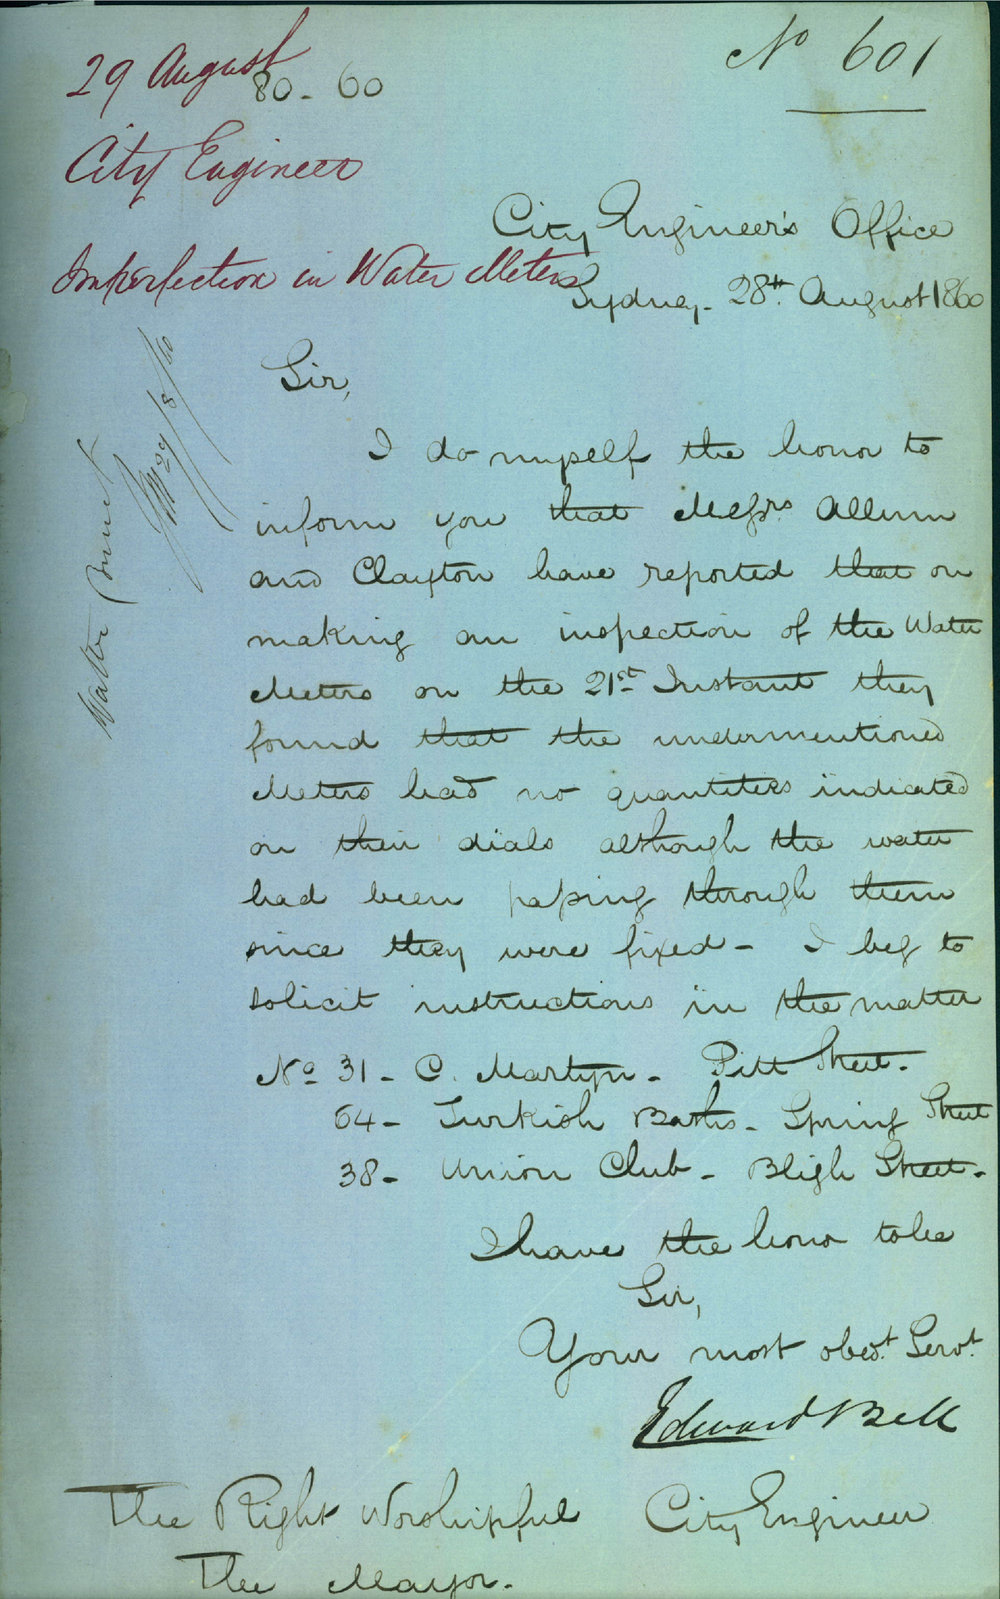 29 August
80-60
No 601
City Engineer
City Engineer's Office
Imperfection in Water Meters
Sydney. 28th August 1860
Sir,
I do myself the honor to
inform you that Messrs Allum
and Clayton have reported that on
making an inspection of the Water
Meters on the 21st Instant they
found that the undermentioned
Meters had no quantities indicated
on their dials although the water
had been passing through them
since they were fixed - I beg to
solicit instructions in the matter
No 31 - C. Martyn - Pitt Street.
64 - Turkish Baths - Spring Street
38 - Union Club - Bligh Street.
I have the honor to be
Sir,
Your most obedt. Servt.
Edward Bell
City Engineer
The Right Worshipful
The Mayor.
Water
29/8/60